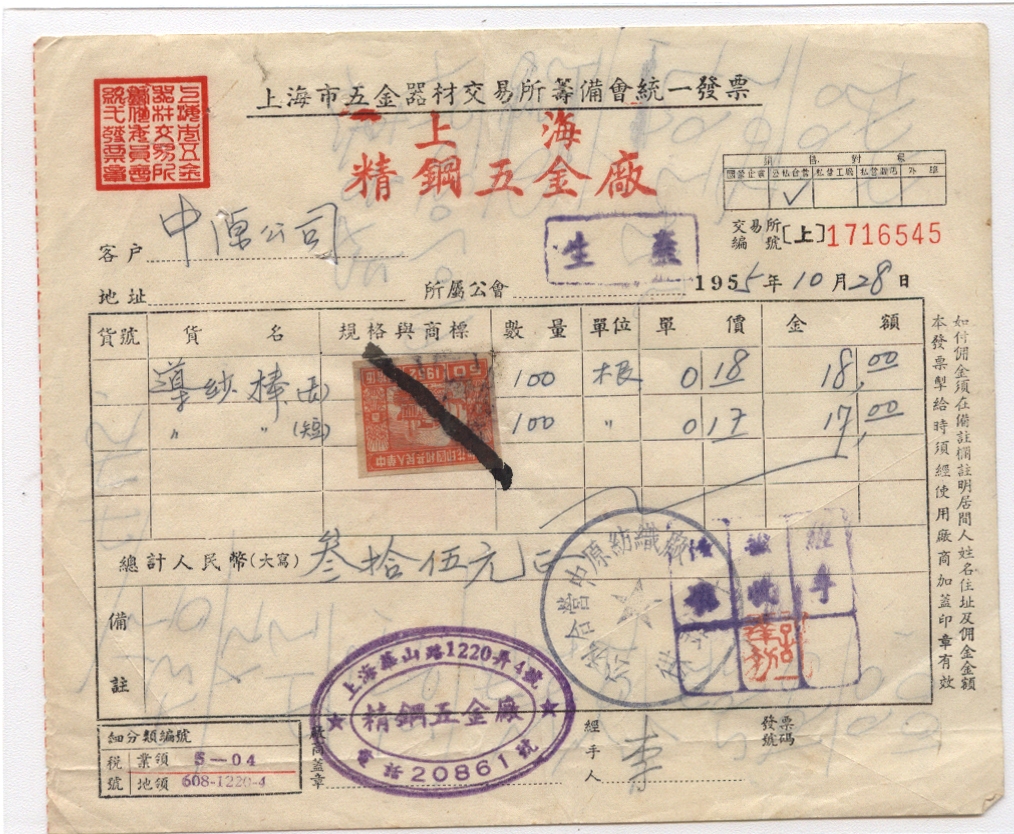 上海市五金器材交易所籌備會統一發票
上海市五金
器材交易所
籌備委員會
統一發票章
上海
精鋼五金廠
開售對象
國營企業 公私合營 私營工廠 私營商店 外埠
✓
交易所編號[上]1716545
客户 中原公司
生產
地址 所屬公會 1955年10月28日
貨號 貨名 規格與商標 數量 單位 單價 金額
導紗棒 100 根 0 18 18,00
〃 〃 (短) 100 〃 0 17 17,00
1952
中華人民共和國印花
總計人民幣(大寫) 叁拾伍元正
備註
如付佣金須在備註欄註明居間人姓名住址及佣金金額
本發票掣給時須經使用廠商加蓋印章有效
中原紡織廠
經手
上海華山路1220弄4號
精鋼五金廠
電話20861號
細分類編號
税號 業領 5-04
地領 608-1220-4
廠商蓋章
經手人 李
發票號碼